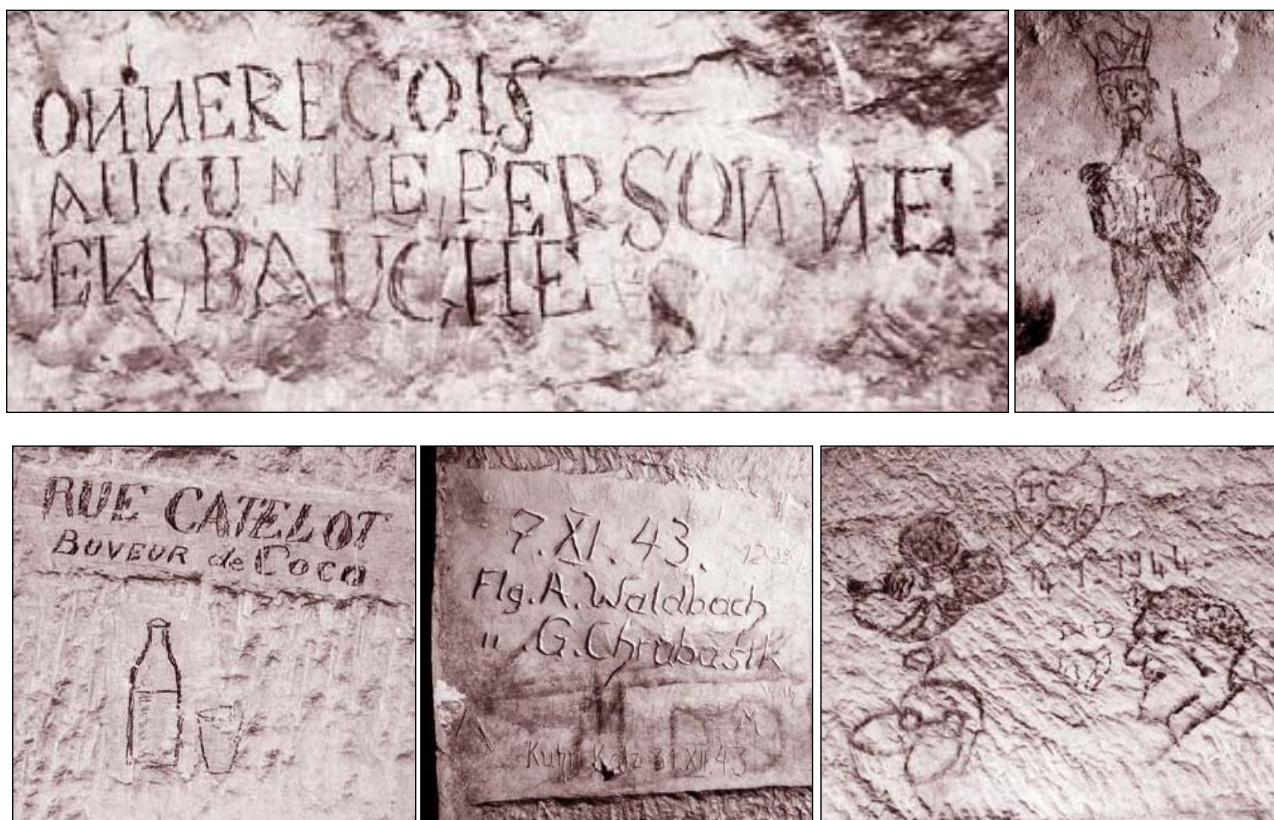 ONNERECOIS
AUCUNNE PERSONNE
EN BAUCHE
RUE CATELOT
BUVEUR de Coca
7. XI. 43.
Flg. A. Waldbach
" . G. Chrubasik
31 XII. 43
TC
1944